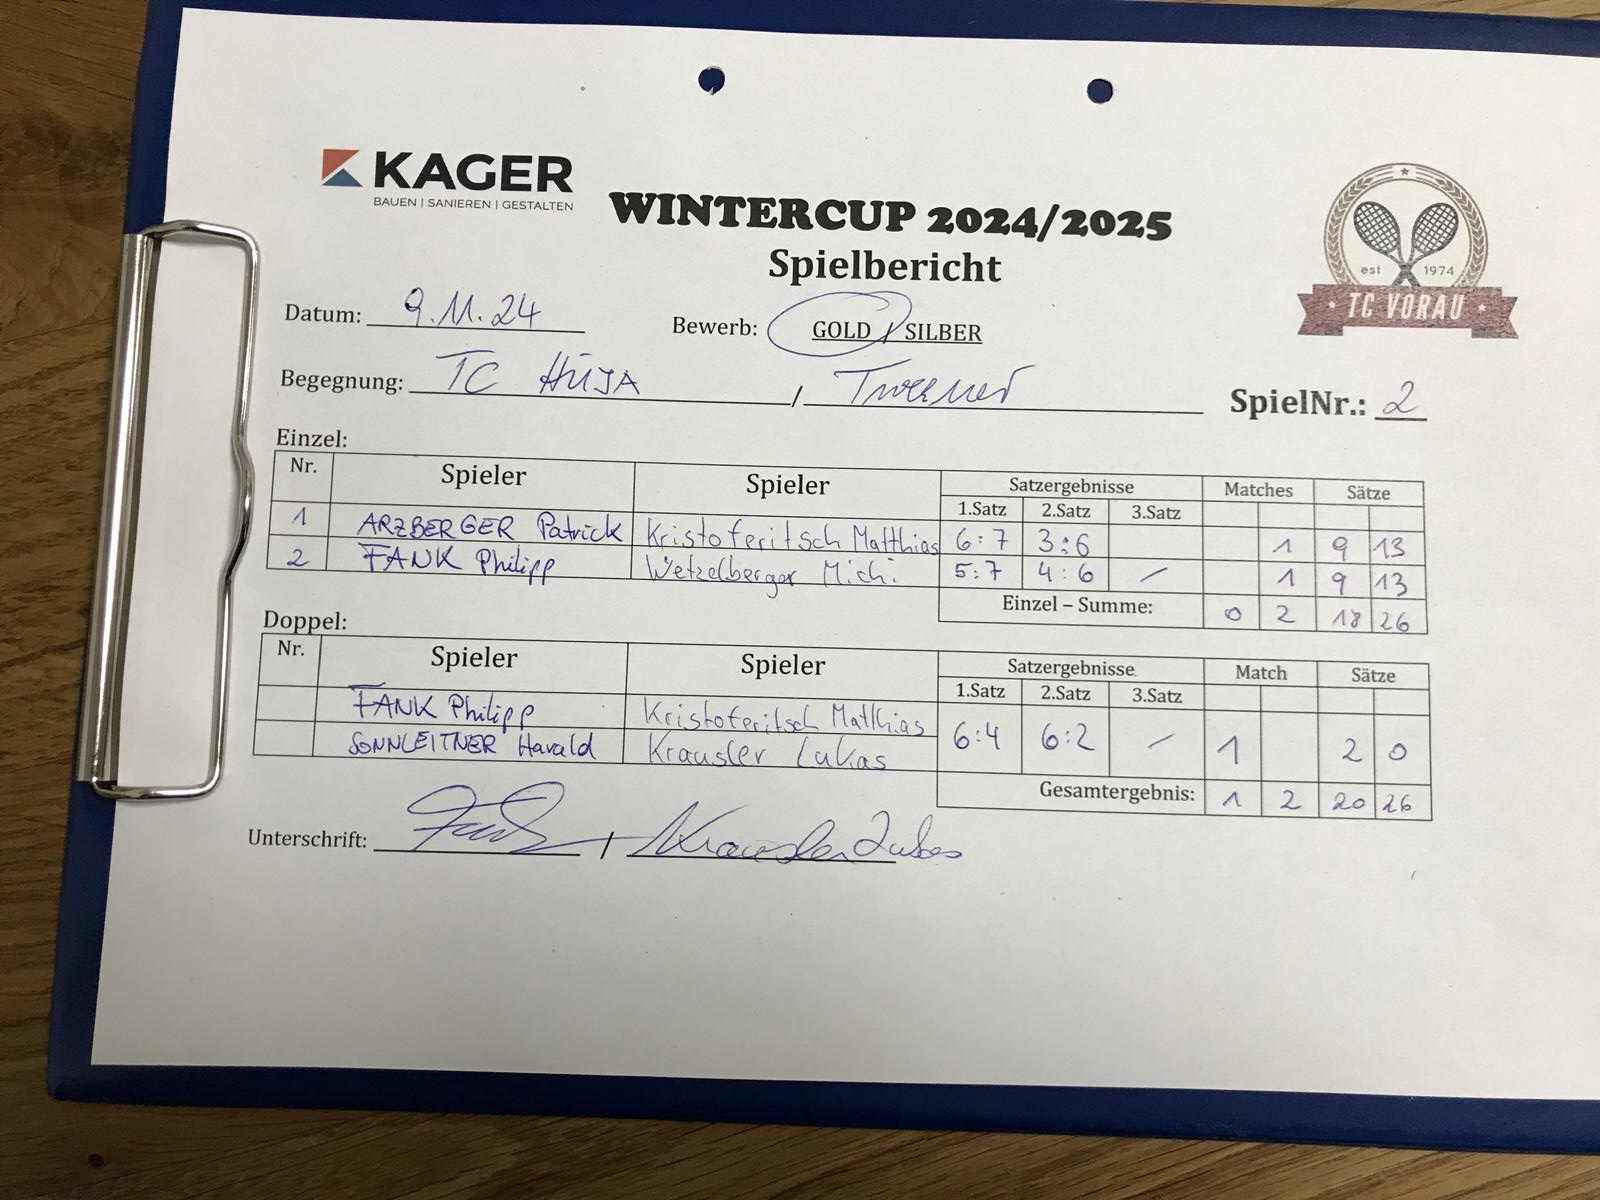 KAGER
BAUEN | SANIEREN | GESTALTEN
WINTERCUP 2024/2025
Spielbericht
est 1974
TC VORAU
Datum: 9.11.24
Bewerb: GOLD / SILBER
Begegnung: TC HÜJA /
SpielNr.: 2
Einzel:
Nr. Spieler Spieler Satzergebnisse Matches Sätze
1.Satz 2.Satz 3.Satz
1 ARZBERGER Patrick Kristoferitsch Matthias 6:7 3:6 1 9 13
2 FANK Philipp Wetzelberger Michi 5:7 4:6 / 1 9 13
Einzel – Summe: 0 2 18 26
Doppel:
Nr. Spieler Spieler Satzergebnisse Match Sätze
1.Satz 2.Satz 3.Satz
FANK Philipp Kristoferitsch Matthias
SONNLEITNER Harald Krausler Lukas 6:4 6:2 / 1 2 0
Gesamtergebnis: 1 2 20 26
Unterschrift: / Krausler Lukas